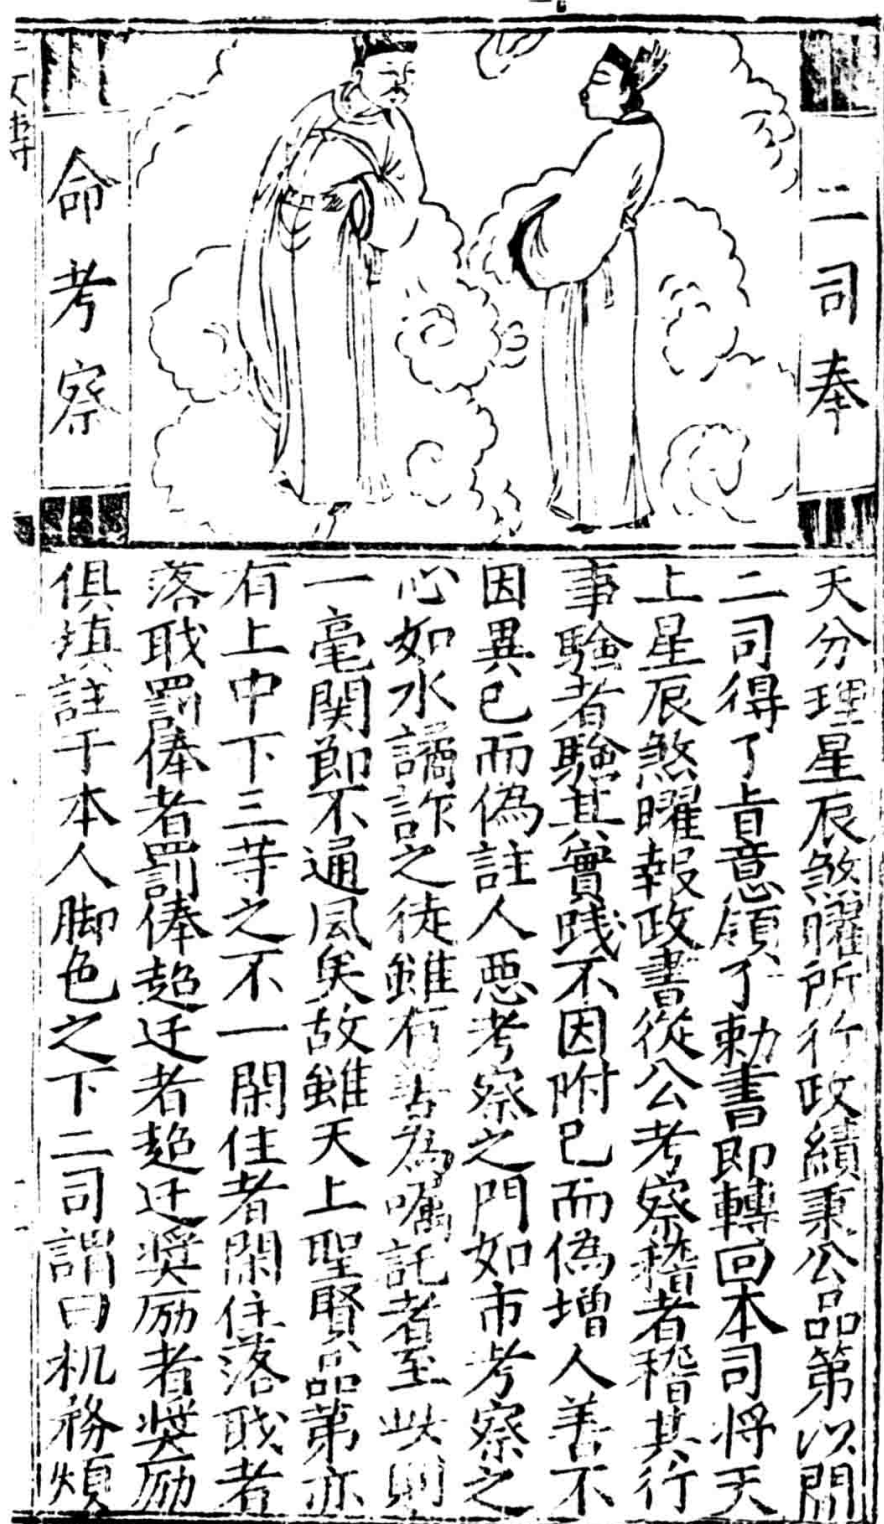 二司奉
命考察
天分理星辰煞曜所行政績秉公品第以聞
二司得了㫖意領了勅書即轉回本司将天
上星辰煞曜報政書從公考察稽者稽其行
事驗者驗其實践不因附己而偽增人善不
因異己而偽註人惡考察之門如市考察之
心如水譎詐之徒雖有善為嘱託者至此則
一毫関節不通風矣故雖天上聖賢品第亦
有上中下三等之不一閑住者閑住落戝者
落戝罰俸者罰俸超迁者超迁奨励者奨励
俱填註于本人脚色之下二司謂曰机務煩